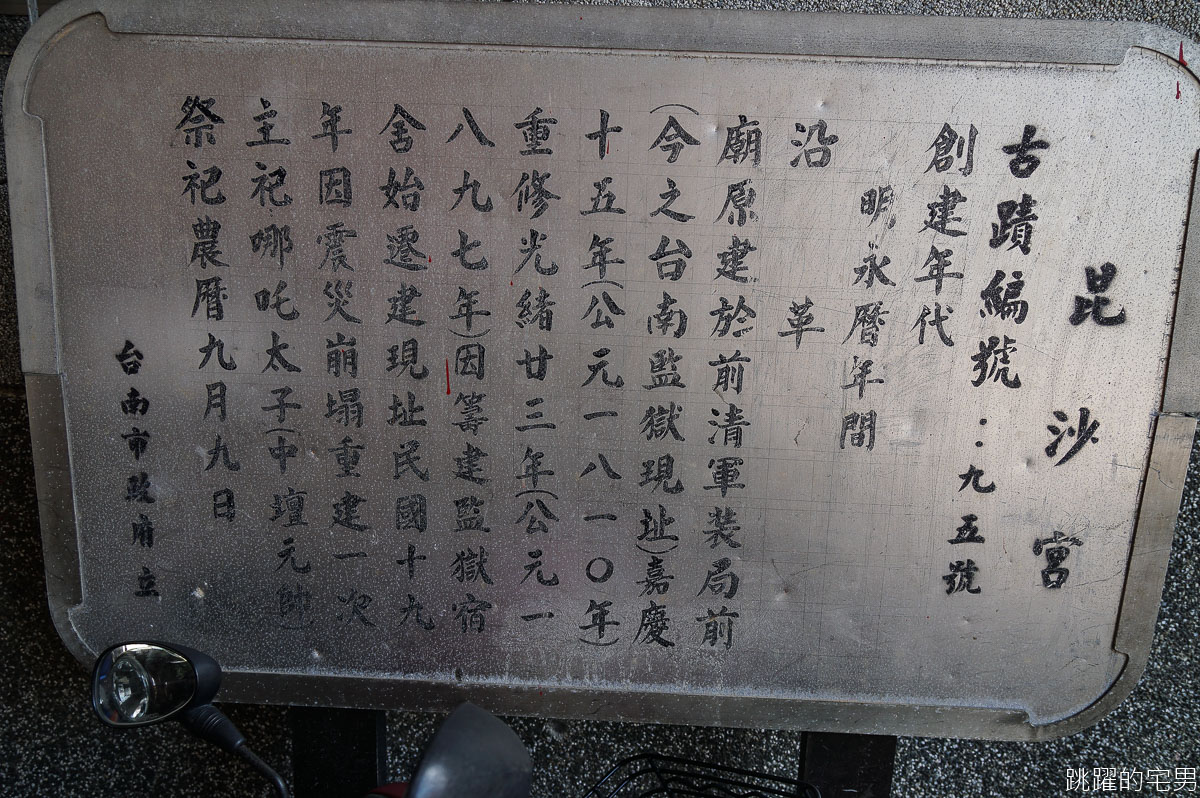 昆沙宮
古蹟編號：九五號
創建年代
明永曆年間
沿革
廟原建於前清軍裝局前
(今之台南監獄現址)嘉慶
十五年(公元一八一○年)
重修光緒廿三年(公元一
八九七年)因籌建監獄宿
舍始遷建現址民國十九
年因震災崩塌重建一次
主祀哪吒太子(中壇元帥)
祭祀農曆九月九日
台南市政府立
跳躍的宅男